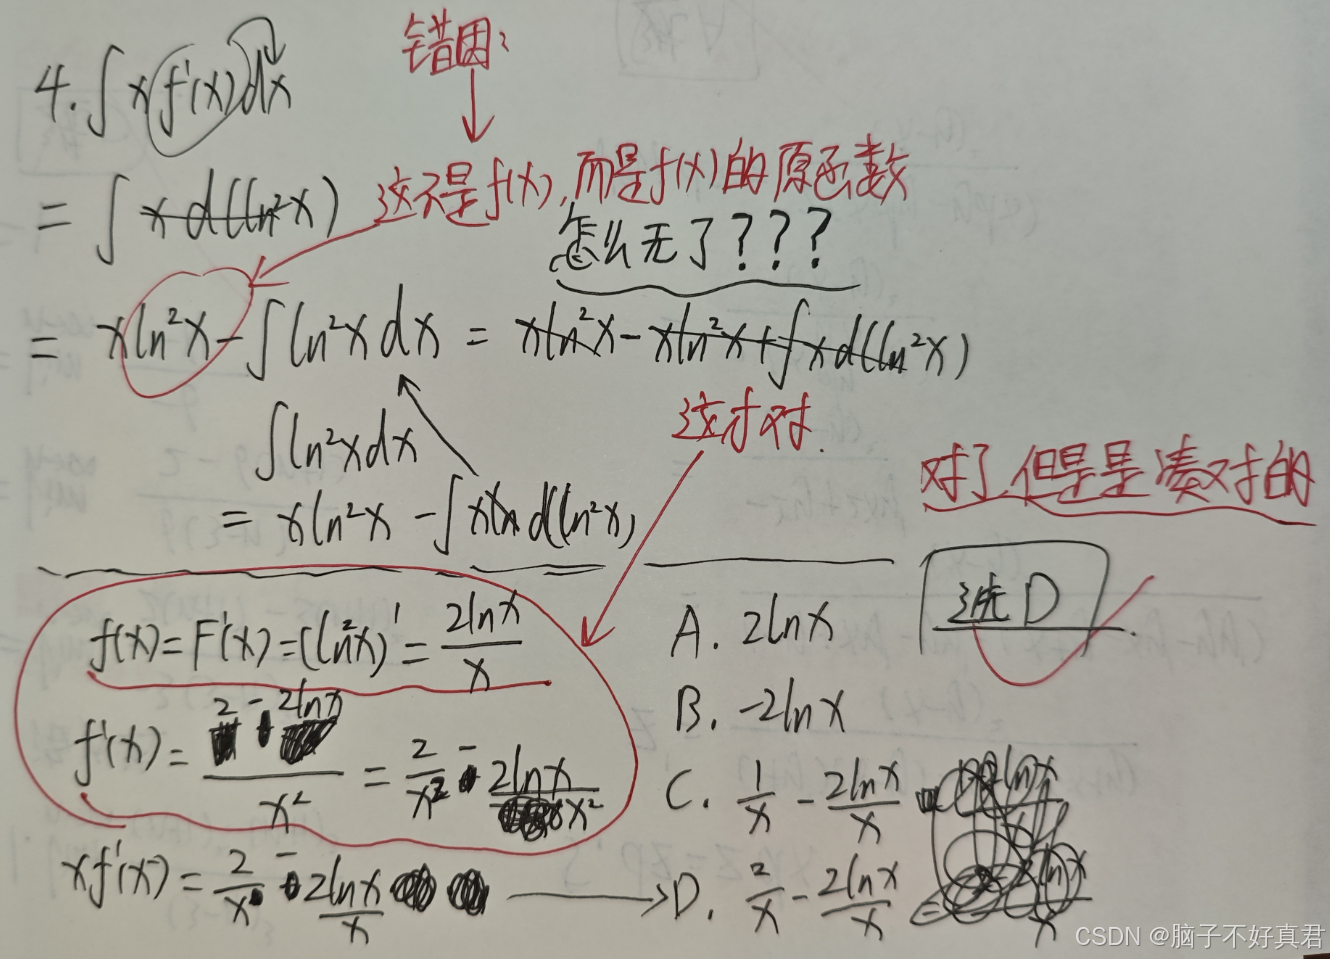 4. ∫ x f'(x) dx
错因:
= ∫ x d(ln²x)
这不是f(x),而是f(x)的原函数
怎么无了???
= xln²x - ∫ ln²x dx = xln²x - xln²x + ∫ x d(ln²x)
∫ ln²x dx
这才对.
= xln²x - ∫ x d(ln²x)
对了,但是是凑对的
f(x) = F'(x) = (ln²x)' = 2lnx/x
A. 2lnx
选D.
f'(x) = (2 - 2lnx)/x² = 2/x² - 2lnx/x²
B. -2lnx
C. 1/x - 2lnx/x
xf'(x) = 2/x - 2lnx/x
D. 2/x - 2lnx/x
CSDN @脑子不好真君